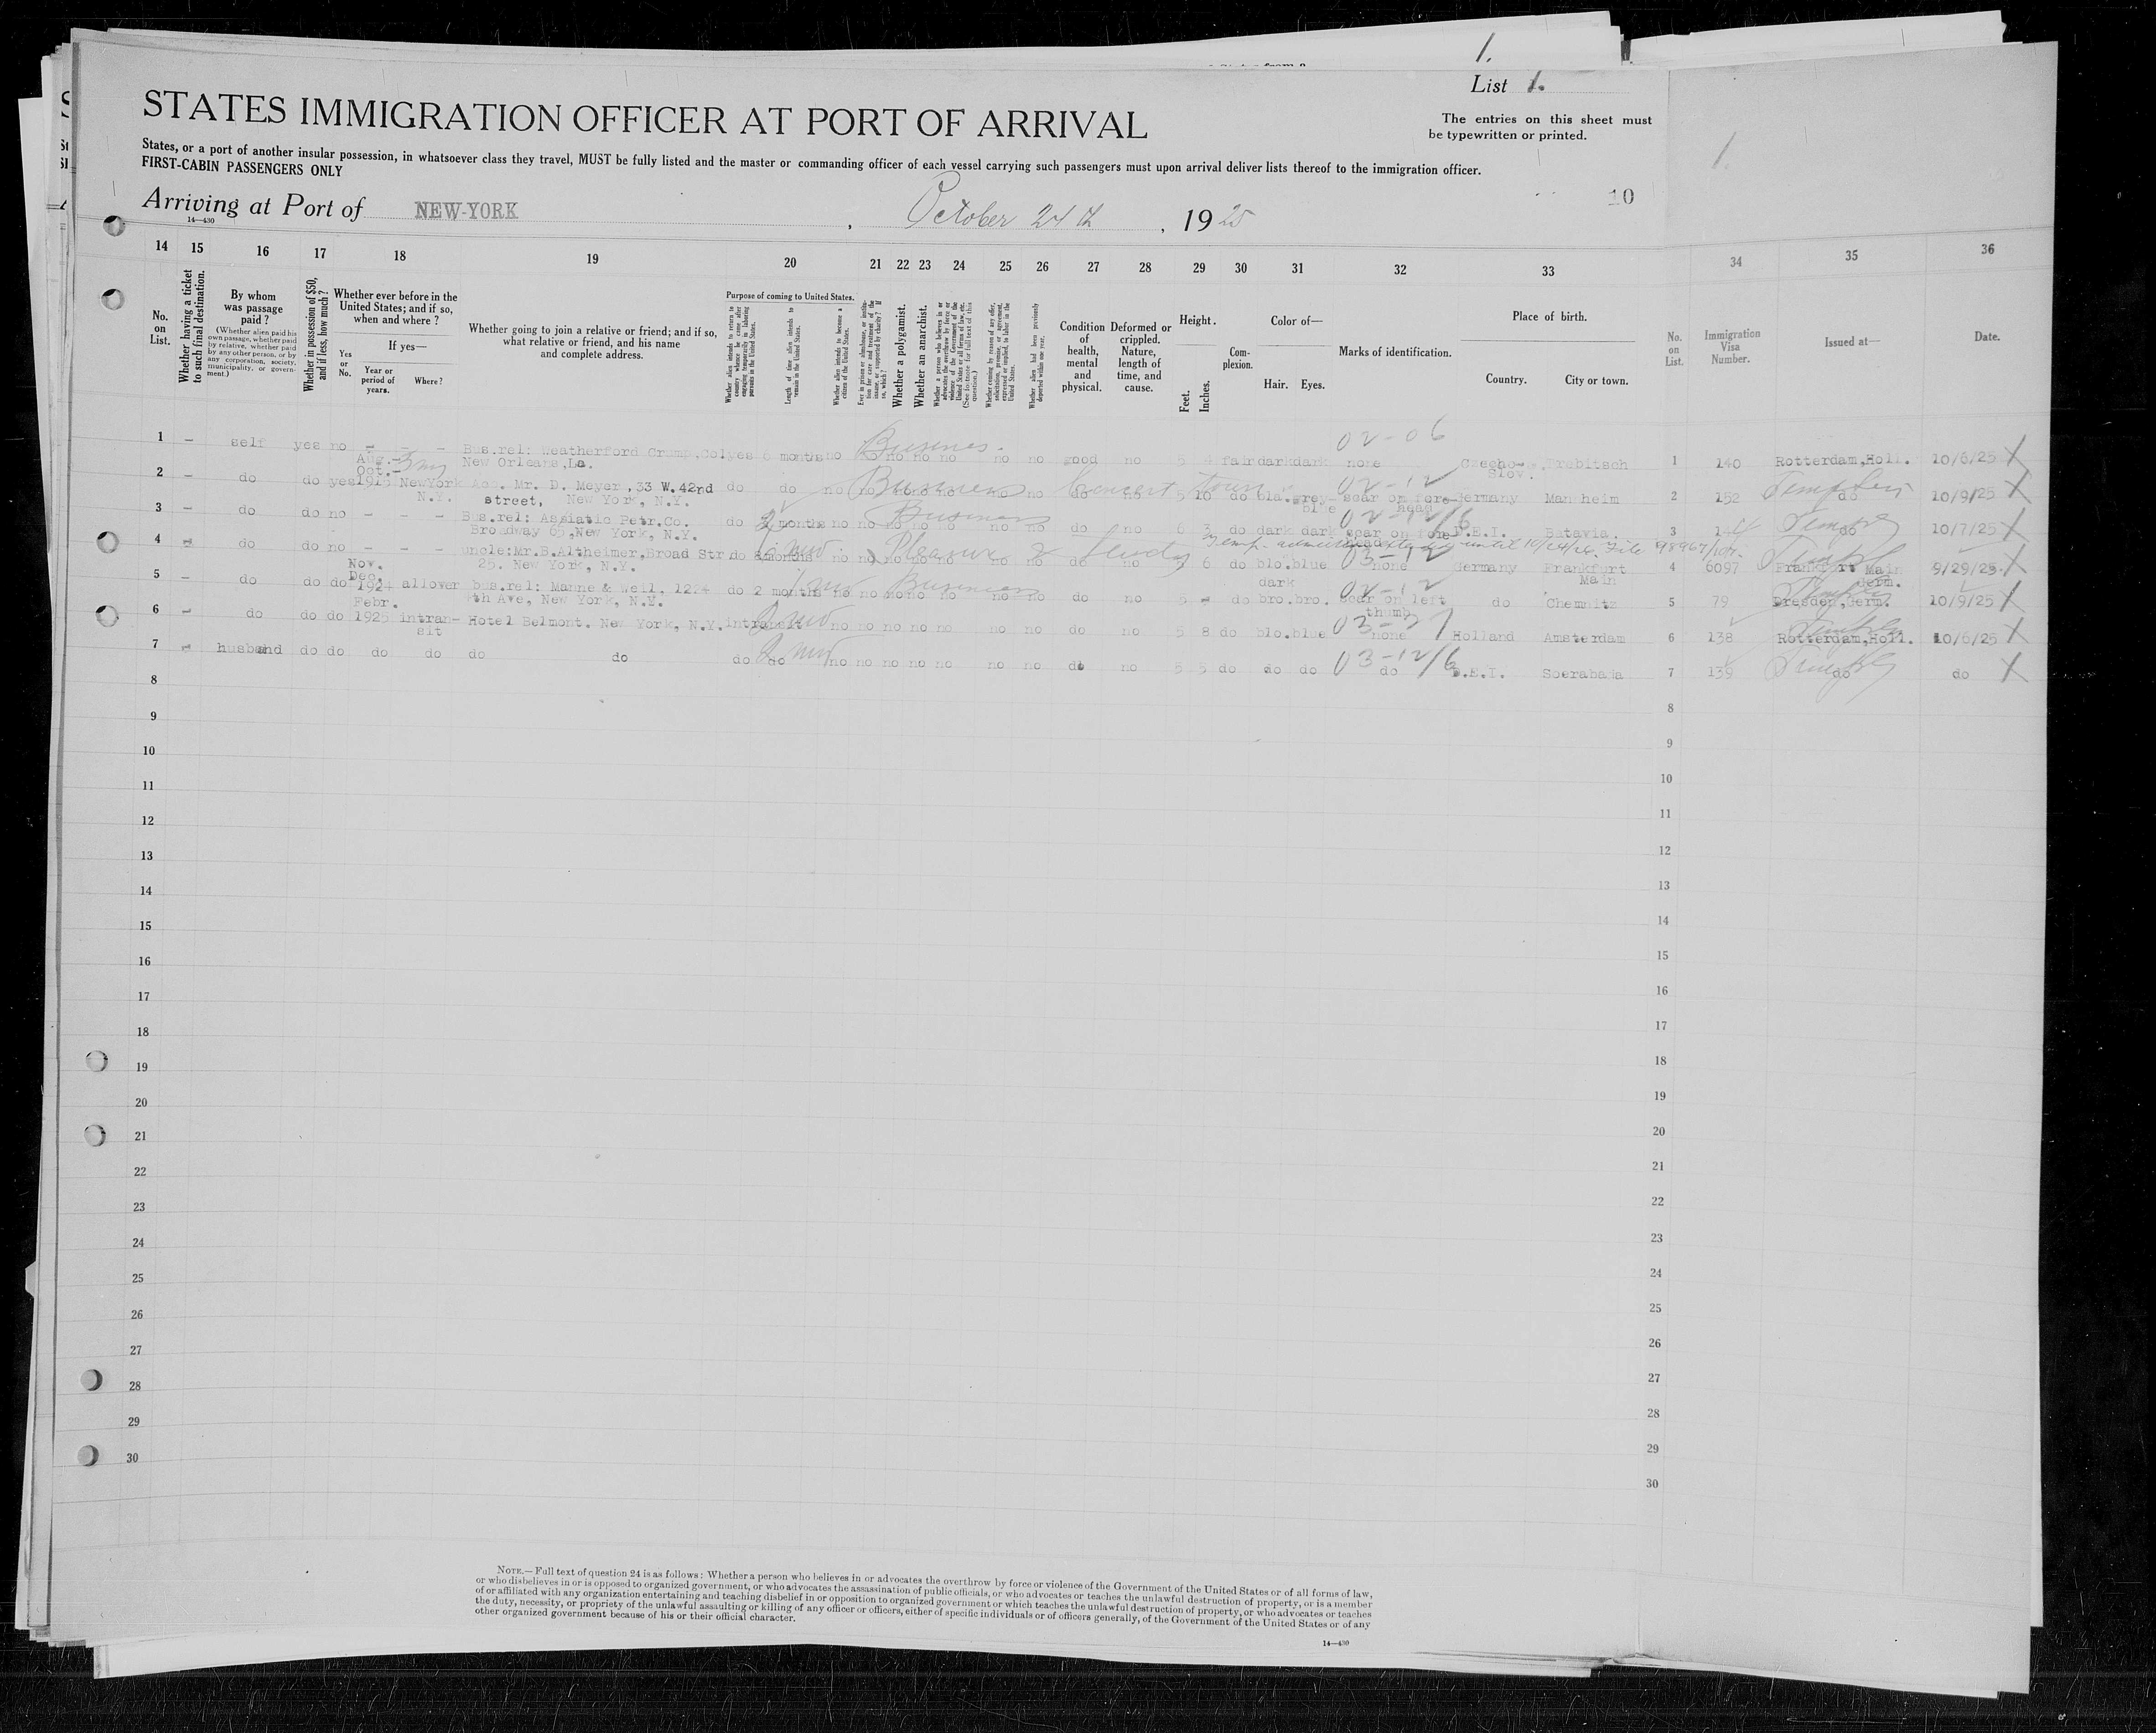 1.
List 1.
STATES IMMIGRATION OFFICER AT PORT OF ARRIVAL
The entries on this sheet must
be typewritten or printed.
States, or a port of another insular possession, in whatsoever class they travel, MUST be fully listed and the master or commanding officer of each vessel carrying such passengers must upon arrival deliver lists thereof to the immigration officer.
FIRST-CABIN PASSENGERS ONLY
1.
10
Arriving at Port of NEW-YORK , October 24th , 1925
14—430
14 15 16 17 18 19 20 21 22 23 24 25 26 27 28 29 30 31 32 33 34 35 36
No. on List.
Whether having a ticket to such final destination.
By whom was passage paid?
(Whether alien paid his own passage, whether paid by relative, whether paid by any other person, or by any corporation, society, municipality, or government.)
Whether in possession of $50, and if less, how much?
Whether ever before in the United States; and if so, when and where?
Yes or No.
If yes—
Year or period of years.
Where?
Whether going to join a relative or friend; and if so, what relative or friend, and his name and complete address.
Purpose of coming to United States.
Whether alien intends to return to country whence he came after engaging temporarily in laboring pursuits in the United States.
Length of time alien intends to remain in the United States.
Whether alien intends to become a citizen of the United States.
Ever in prison or almshouse, or institution for care and treatment of the insane, or supported by charity? If so, which?
Whether a polygamist.
Whether an anarchist.
Whether a person who believes in or advocates the overthrow by force or violence of the Government of the United States or all forms of law, etc. (See footnote for full text of this question.)
Whether coming by reason of any offer, solicitation, promise, or agreement, expressed or implied, to labor in the United States.
Whether alien had been previously deported within one year.
Condition of health, mental and physical.
Deformed or crippled. Nature, length of time, and cause.
Height.
Feet.
Inches.
Complexion.
Color of—
Hair. Eyes.
Marks of identification.
Place of birth.
Country. City or town.
No. on List.
Immigration Visa Number.
Issued at—
Date.
1 — self yes no — — — Bus.rel: Weatherford Crump,Col yes months no Busines. no no no no no no good no 5 fair dark dark 02-06 none Czecho- Slov. Trebitsch 1 140 Rotterdam,Holl. 10/6/25 X
New Orleans,La.
2 — do do yes Aug.- Oct.- 1913 NewYork N.Y. Acc. Mr. D. Meyer ,33 W.42nd do do no no Business Concert Tour no no no no no do no 5 10 do bla. grey-blue 02-12 scar on forehead Germany Mannheim 2 152 do 10/9/25 X
street, New York, N.Y.
3 — do do no — — — Bus.rel: Assiatic Petr.Co. do 2 months no no Business no no no no no do no 6 3 do dark dark 02-12/6 scar on forehead D.E.I. Batavia. 3 do 10/7/25 X
Broadway 65,New York, N.Y.
4 do do no — — — uncle:Mr.B.Altheimer,Broad Str do months no no Pleasure & Study no no no no no do no 5 6 do blo.blue 03-12 none Germany Frankfurt Main 4 6097 Frankfurt Main Germ. 9/29/25 X
25. New York, N.Y.
5 do do do Nov. Dec. 1924 allover bus.rel: Manne & Weil, 1224 do 2 months no Business no no no no no no do no 5 do dark bro.bro. 02-12 scar on left thumb do Chemnitz 5 79 Dresden,Germ. 10/9/25 X
4th Ave, New York, N.Y.
6 do do do Febr. 1925 intran-sit Hotel Belmont. New York, N.Y. intransit no no no no no no no do no 5 8 do blo.blue none Holland Amsterdam 6 138 Rotterdam,Holl. 10/6/25 X
7 husband do do do do do do do do no no no no no no no do no 5 5 do do do 03-12/6 do D.E.I. Soerabaja 7 139 do do X
8 8
9 9
10 10
11 11
12 12
13 13
14 14
15 15
16 16
17 17
18 18
19 19
20 20
21 21
22 22
23 23
24 24
25 25
26 26
27 27
28 28
29 29
30 30
NOTE.—Full text of question 24 is as follows: Whether a person who believes in or advocates the overthrow by force or violence of the Government of the United States or of all forms of law,
or who disbelieves in or is opposed to organized government, or who advocates the assassination of public officials, or who advocates or teaches the unlawful destruction of property, or is a member
of or affiliated with any organization entertaining and teaching disbelief in or opposition to organized government or which teaches the unlawful destruction of property, or who advocates or teaches
the duty, necessity, or propriety of the unlawful assaulting or killing of any officer or officers, either of specific individuals or of officers generally, of the Government of the United States or of any
other organized government because of his or their official character.
14—430